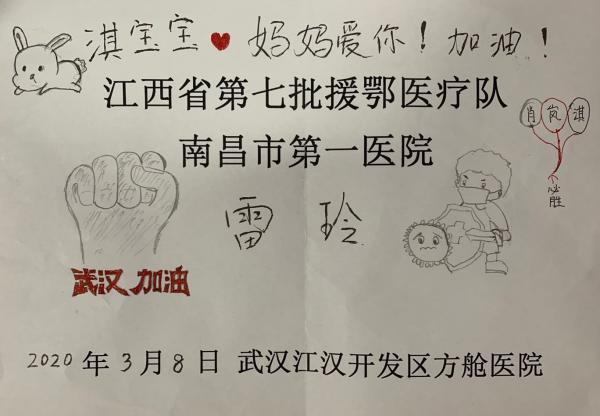 淇宝宝❤妈妈爱你！加油！
江西省第七批援鄂医疗队
南昌市第一医院
肖岚淇
必胜
雷玲
武汉加油
2020年3月8日 武汉江汉开发区方舱医院